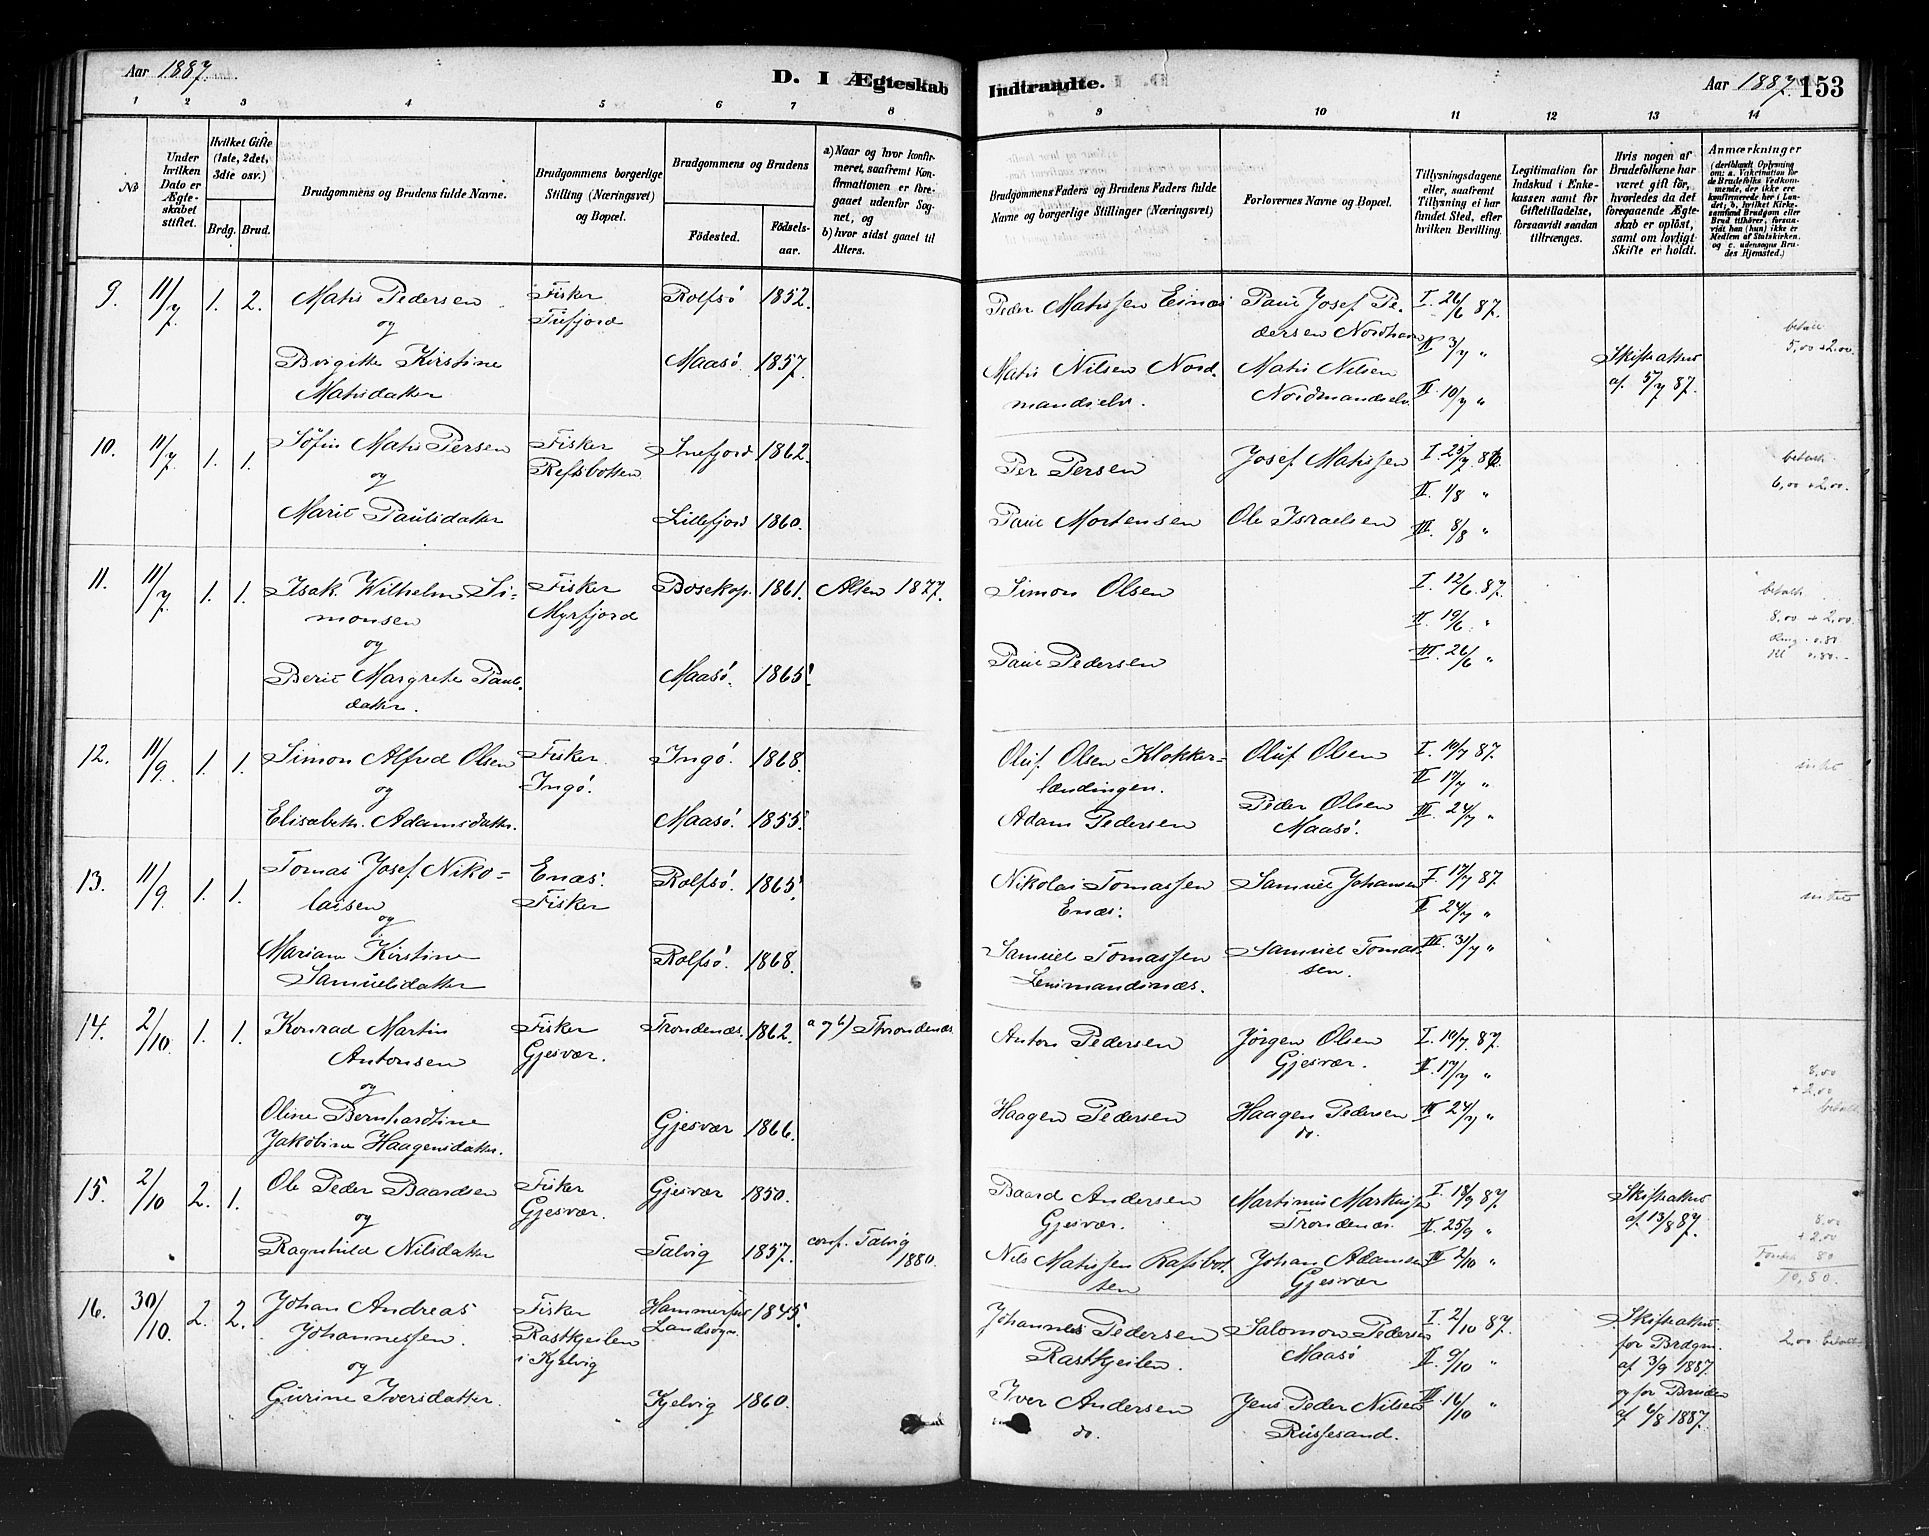 Aar 1887.
D. I Ægteskab
1 2 3 4 5 6 7 8
No
Under hvilken Dato er Ægteskabet stiftet.
Hvilket Gifte (1ste, 2det, 3die osv.)
Brdg. Brud.
Brudgommens og Brudens fulde Navne.
Brudgommens borgerlige Stilling (Næringsvei) og Bopæl.
Brudgommens og Brudens
Födested.
Födsels-aar.
a) Naar og hvor konfirmeret, saafremt Konfirmationen er foregaaet udenfor Sognet, og
b) hvor sidst gaaet til Alters.
9. 11/7. 1. 2. Matis Pedersen Fisker Rolfsö 1852.
og Tufjord
Brigitte Kirstine Maasö 1857.
Matisdatter
10. 11/7. 1. 1. Söfin Matis Persen Fisker Snefjord 1862.
og Refsbotten
Marit Paulsdatter Lillefjord 1860.
11. 11/7. 1. 1. Isak Wilhelm Si- Fisker Bosekop. 1861. Alten 1877.
monsen Myrfjord
og
Berit Margrete Pauls- Maasö. 1865.
datter.
12. 11/9. 1. 1. Simon Alfred Olsen Fisker Ingö. 1868.
og Ingö.
Elisabeth Adamsdatter. Maasö. 1855.
13. 11/9. 1. 1. Tomas Josef Niko- Enæs. Rolfsö. 1865.
laisen Fisker
og
Mariane Kirstine Rolfsö. 1868.
Samuelsdatter
14. 2/10. 1. 1. Konrad Martin Fisker Trondenæs. 1862. a og b) Throndenæs
Antonsen Gjesvær.
og
Oline Bernhardtine Gjesvær 1866.
Jakobine Haagensdatter.
15. 2/10. 2. 1. Ole Peder Baardsen Fisker Gjesvær 1850.
og Gjesvær.
Ragnhild Nilsdatter Talvig 1857. conf. Talvig
1880.
16. 30/10. 2. 2. Johan Andreas Fisker Hammerfest 1845.
Johannessen. Rastkjeilen Landsogn.
og i Kjelvig
Gurine Iversdatter. Kjelvig 1860.
Indtrandte.
Aar 1887. 153
9 10 11 12 13 14
Brudgommens Faders og Brudens Faders fulde Navne og borgerlige Stillinger (Næringsvei)
Forlovernes Navne og Bopæl.
Tillysningsdagene eller, saafremt Tillysning ei har fundet Sted, efter hvilken Bevilling.
Legitimation for Indskud i Enkekassen samt for Giftetilladelse, forsaavidt saadan tiltrænges.
Hvis nogen af Brudefolkene har været gift för, hvorledes da det foregaaende Ægteskab er oplöst, samt om lovligt Skifte er holdt.
Anmærkninger
(deriblandt Oplysning om: a. Vakcination for Brudefolks Vedkommende, der ikke ere konfirmerede her i Landet; b. hvilket Kirkesamfund Brudgom eller Brud tilhörer, forsaavidt han (hun) ikke er Medlem af Statskirken, og c. udensogns Brudes Hjemsted.)
Peder Matissen Einæs Paul Josef Pe- I. 26/6 87. betalt
dersen Nordhavn II 3/7 " 5,00 + 2,00.
Matis Nilsen Nord- Matis Nilsen III. 10/7 " Skifteattest
mandselv. Nordmandselv. af 5/7 87.
Per Persen Josef Matissen I. 25/7. 86. betalt
II. 1/8 " 6,00 + 2,00.
Paul Mortensen Ole Israelsen III. 8/8 "
Simon Olsen I. 12/6. 87. betalt
II. 19/6. " 8,00 + 2,00
Paul Pedersen III. 26/6 "
Oluf Olsen Klokker- Oluf Olsen I. 10/7 87. intet
lændingen. II 17/7 "
Adam Pedersen Peder Olsen III. 24/7 "
Maasö.
Nikolai Tomassen Samuel Johansen I. 17/7 87. intet
Enæs. II 24/7 "
Samuel Tomassen Samuel Tomas- III. 31/7 "
Lensmandsnæs. sen.
Anton Pedersen Jørgen Olsen I. 10/7. 87. 8,00
Gjesvær. II. 17/7 " + 2,00
Haagen Pedersen Haagen Pedersen III 24/7 " betalt
do.
Baard Andersen Martinus Markussen I. 18/9 87. Skifteattest 8,00
Gjesvær. Trondenæs. II. 25/9 " af 13/8 87. + 2,00
Nils Matissen Rafsbot- Johan Adamsen III 2/10 " 80
ten Gjesvær 10,80.
Johannes Pedersen Salomon Pedersen I. 2/10 87. Skifteattest
Rastkjeilen. Maasö II. 9/10 " for Brdgm. 2,00 betalt
af 3/9 1887.
Iver Andersen Jens Peder Nilsen III. 16/10 " og for Bruden
do. Russesand. af 6/8 1887.